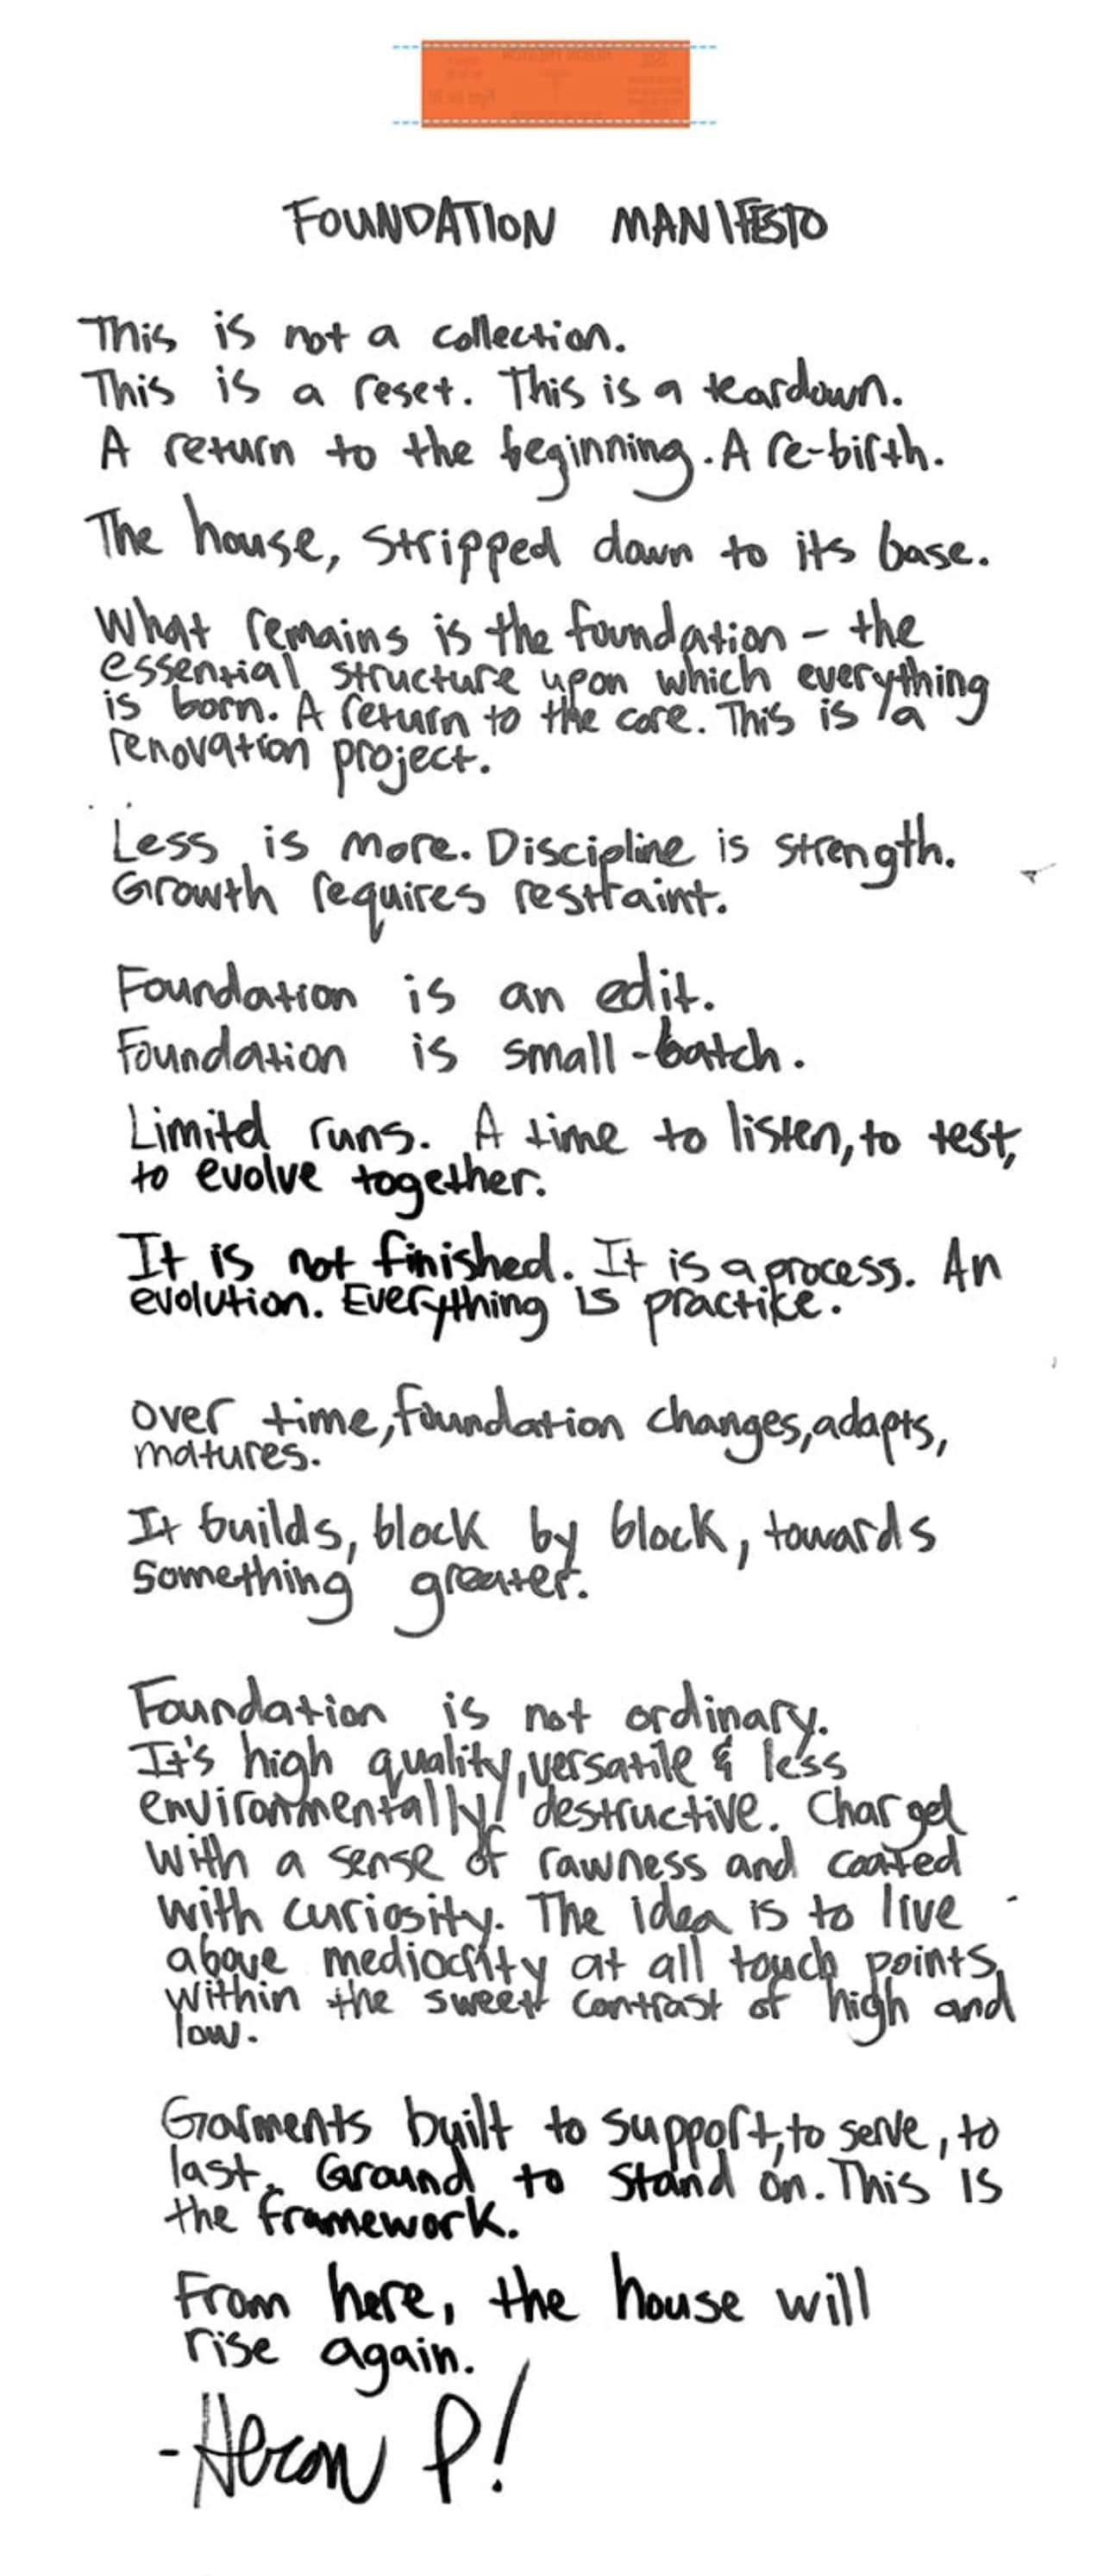 FOUNDATION MANIFESTO
This is not a collection.
This is a reset. This is a teardown.
A return to the beginning. A re-birth.
The house, stripped down to its base.
What remains is the foundation - the
essential structure upon which everything
is born. A return to the core. This is a
renovation project.
Less is more. Discipline is strength.
Growth requires restraint.
Foundation is an edit.
Foundation is small-batch.
Limited runs. A time to listen, to test,
to evolve together.
It is not finished. It is a process. An
evolution. Everything is practice.
over time, foundation changes, adapts,
matures.
It builds, block by block, towards
something greater.
Foundation is not ordinary.
It's high quality, versatile & less
environmentally destructive. Charged
with a sense of rawness and coated
with curiosity. The idea is to live
above mediocrity at all touch points,
within the sweet contrast of high and
low.
Garments built to support, to serve, to
last. Ground to stand on. This is
the framework.
From here, the house will
rise again.
- Heron P!